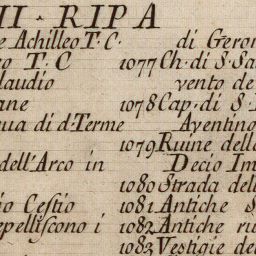 II · RIPA
e Achilleo T. C.
eo T. C
laudio
ane
qua di d. Terme
dell'Arco in
io Cestio
epelliscono i
di Geron
1077 Ch. di S. Sa
vento de
1078 Cap. di S.
Aventino
1079 Ruine delle
Decio Im
1080 Strada dell
1081 Antiche S
1082 Antiche ru
1083 Vestigie de